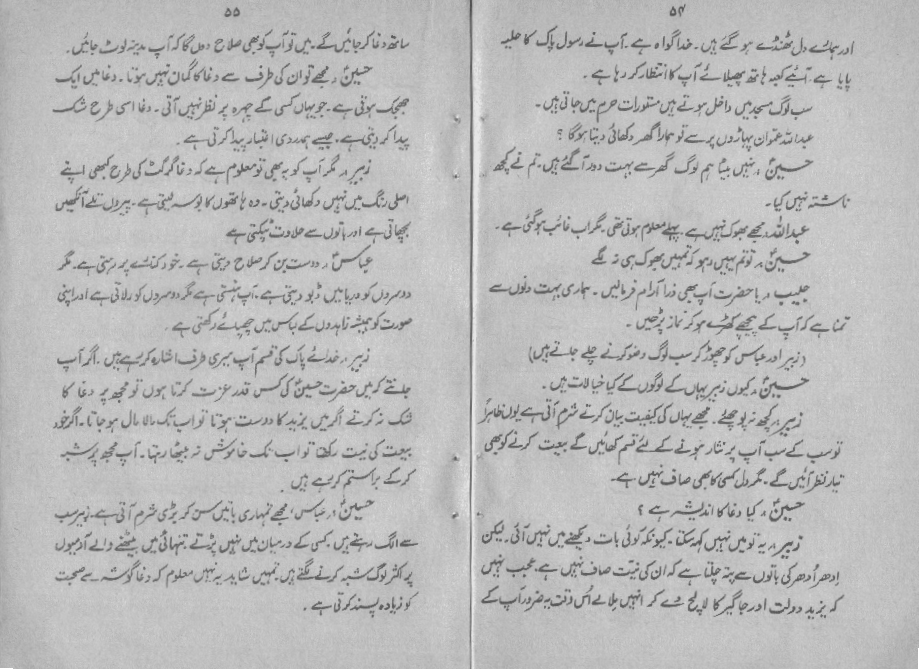 ۵۴
اور ہمارے دل ٹھنڈے ہو گئے ہیں۔ خدا گواہ ہے۔ آپ نے رسول پاک کا حلیہ
پایا ہے۔ آئیے کعبہ ہاتھ پھیلائے آپ کا انتظار کر رہا ہے۔
سب لوگ مسجد میں داخل ہوتے ہیں مستورات حرم میں جاتی ہیں۔
عبداللہ عمران پہاڑوں پر سے تو ہمارا گھر دکھائی دیتا ہوگا؟
حسینؑ، نہیں بیٹا ہم لوگ گھر سے بہت دور آ گئے ہیں۔ تم نے کچھ
ناشتہ نہیں کیا۔
عبداللہ، مجھے بھوک نہیں ہے۔ پہلے معلوم ہوتی تھی۔ مگر اب غائب ہو گئی ہے۔
حسینؑ، تو تم یہیں رہو کہ تمہیں بھوک ہی نہ لگے
حبیب، یا حضرت آپ بھی ذرا آرام فرمالیں۔ ہماری بہت دنوں سے
تمنا ہے کہ آپ کے پیچھے کھڑے ہو کر نماز پڑھیں۔
(زبیر اور عباس کو چھوڑ کر سب لوگ وضو کرنے چلے جاتے ہیں)
حسینؑ، کیوں زبیر یہاں کے لوگوں کے کیا خیالات ہیں۔
زبیر، کچھ نہ پوچھئے۔ مجھے یہاں کی کیفیت بیان کرتے شرم آتی ہے یوں ظاہرا
تو سب کے سب آپ پر نثار ہونے کے لئے قسم کھائیں گے بیعت کرنے کو بھی
تیار نظر آئیں گے۔ مگر دل کسی کا بھی صاف نہیں ہے۔
حسینؑ، کیا دغا کا اندیشہ ہے؟
زبیر، یہ تو میں نہیں کہہ سکتا۔ کیونکہ کوئی بات دیکھنے میں نہیں آئی۔ لیکن
اِدھر اُدھر کی باتوں سے پتہ چلتا ہے کہ ان کی نیت صاف نہیں ہے، عجب نہیں
کہ یزید دولت اور جاگیر کا لالچ دے کر انہیں ملا لے اُس وقت یہ ضرور آپ کے
۵۵
ساتھ دغا کر جائیں گے۔ میں تو آپ کو بھی صلاح دوں گا کہ آپ مدینہ لوٹ جائیں۔
حسینؑ، مجھے تو ان کی طرف سے دغا کا گمان نہیں ہوتا۔ دغا میں ایک
جھجک ہوتی ہے۔ جو یہاں کسی کے چہرہ پر نظر نہیں آتی۔ دغا اسی طرح شک
پیدا کر دیتی ہے، جیسے ہمدردی اعتبار پیدا کرتی ہے۔
زبیر، مگر آپ کو یہ بھی تو معلوم ہے کہ دغا گرگٹ کی طرح کبھی اپنے
اصلی رنگ میں نہیں دکھائی دیتی۔ وہ ہاتھوں کا بوسہ لیتی ہے۔ پیروں تلے آنکھیں
بچھاتی ہے اور باتوں سے حلاوت ٹپکتی ہے
عباس، دوست بن کر صلاح دیتی ہے۔ خود کنارے پر رہتی ہے۔ مگر
دوسروں کو دریا میں ڈبو دیتی ہے۔ آپ ہنستی ہے مگر دوسروں کو رلاتی ہے اور اپنی
صورت کو ہمیشہ زاہدوں کے لباس میں چھپائے رکھتی ہے۔
زبیر، خدائے پاک کی قسم آپ میری طرف اشارہ کر رہے ہیں۔ اگر آپ
جانتے کہ میں حضرت حسینؑ کی کس قدر عزت کرتا ہوں تو مجھ پر دغا کا
شک نہ کرتے اگر میں یزید کا دوست ہوتا تو اب تک مالا مال ہو جاتا۔ اگر خود
بیعت کی نیت رکھتا تو اب تک خاموش نہ بیٹھا رہتا۔ آپ مجھ پر شبہ
کر کے بڑا ستم کر رہے ہیں
حسینؑ، عباس، مجھے تمہاری باتیں سن کر بڑی شرم آتی ہے۔ زبیر سب
سے الگ رہتے ہیں۔ کسی کے درمیان میں نہیں پڑتے تنہائی میں بیٹھنے والے آدمیوں
پر اکثر لوگ شبہ کرنے لگتے ہیں۔ تمہیں شاید یہ نہیں معلوم کہ دغا گوشہ سے صحبت
کو زیادہ پسند کرتی ہے۔